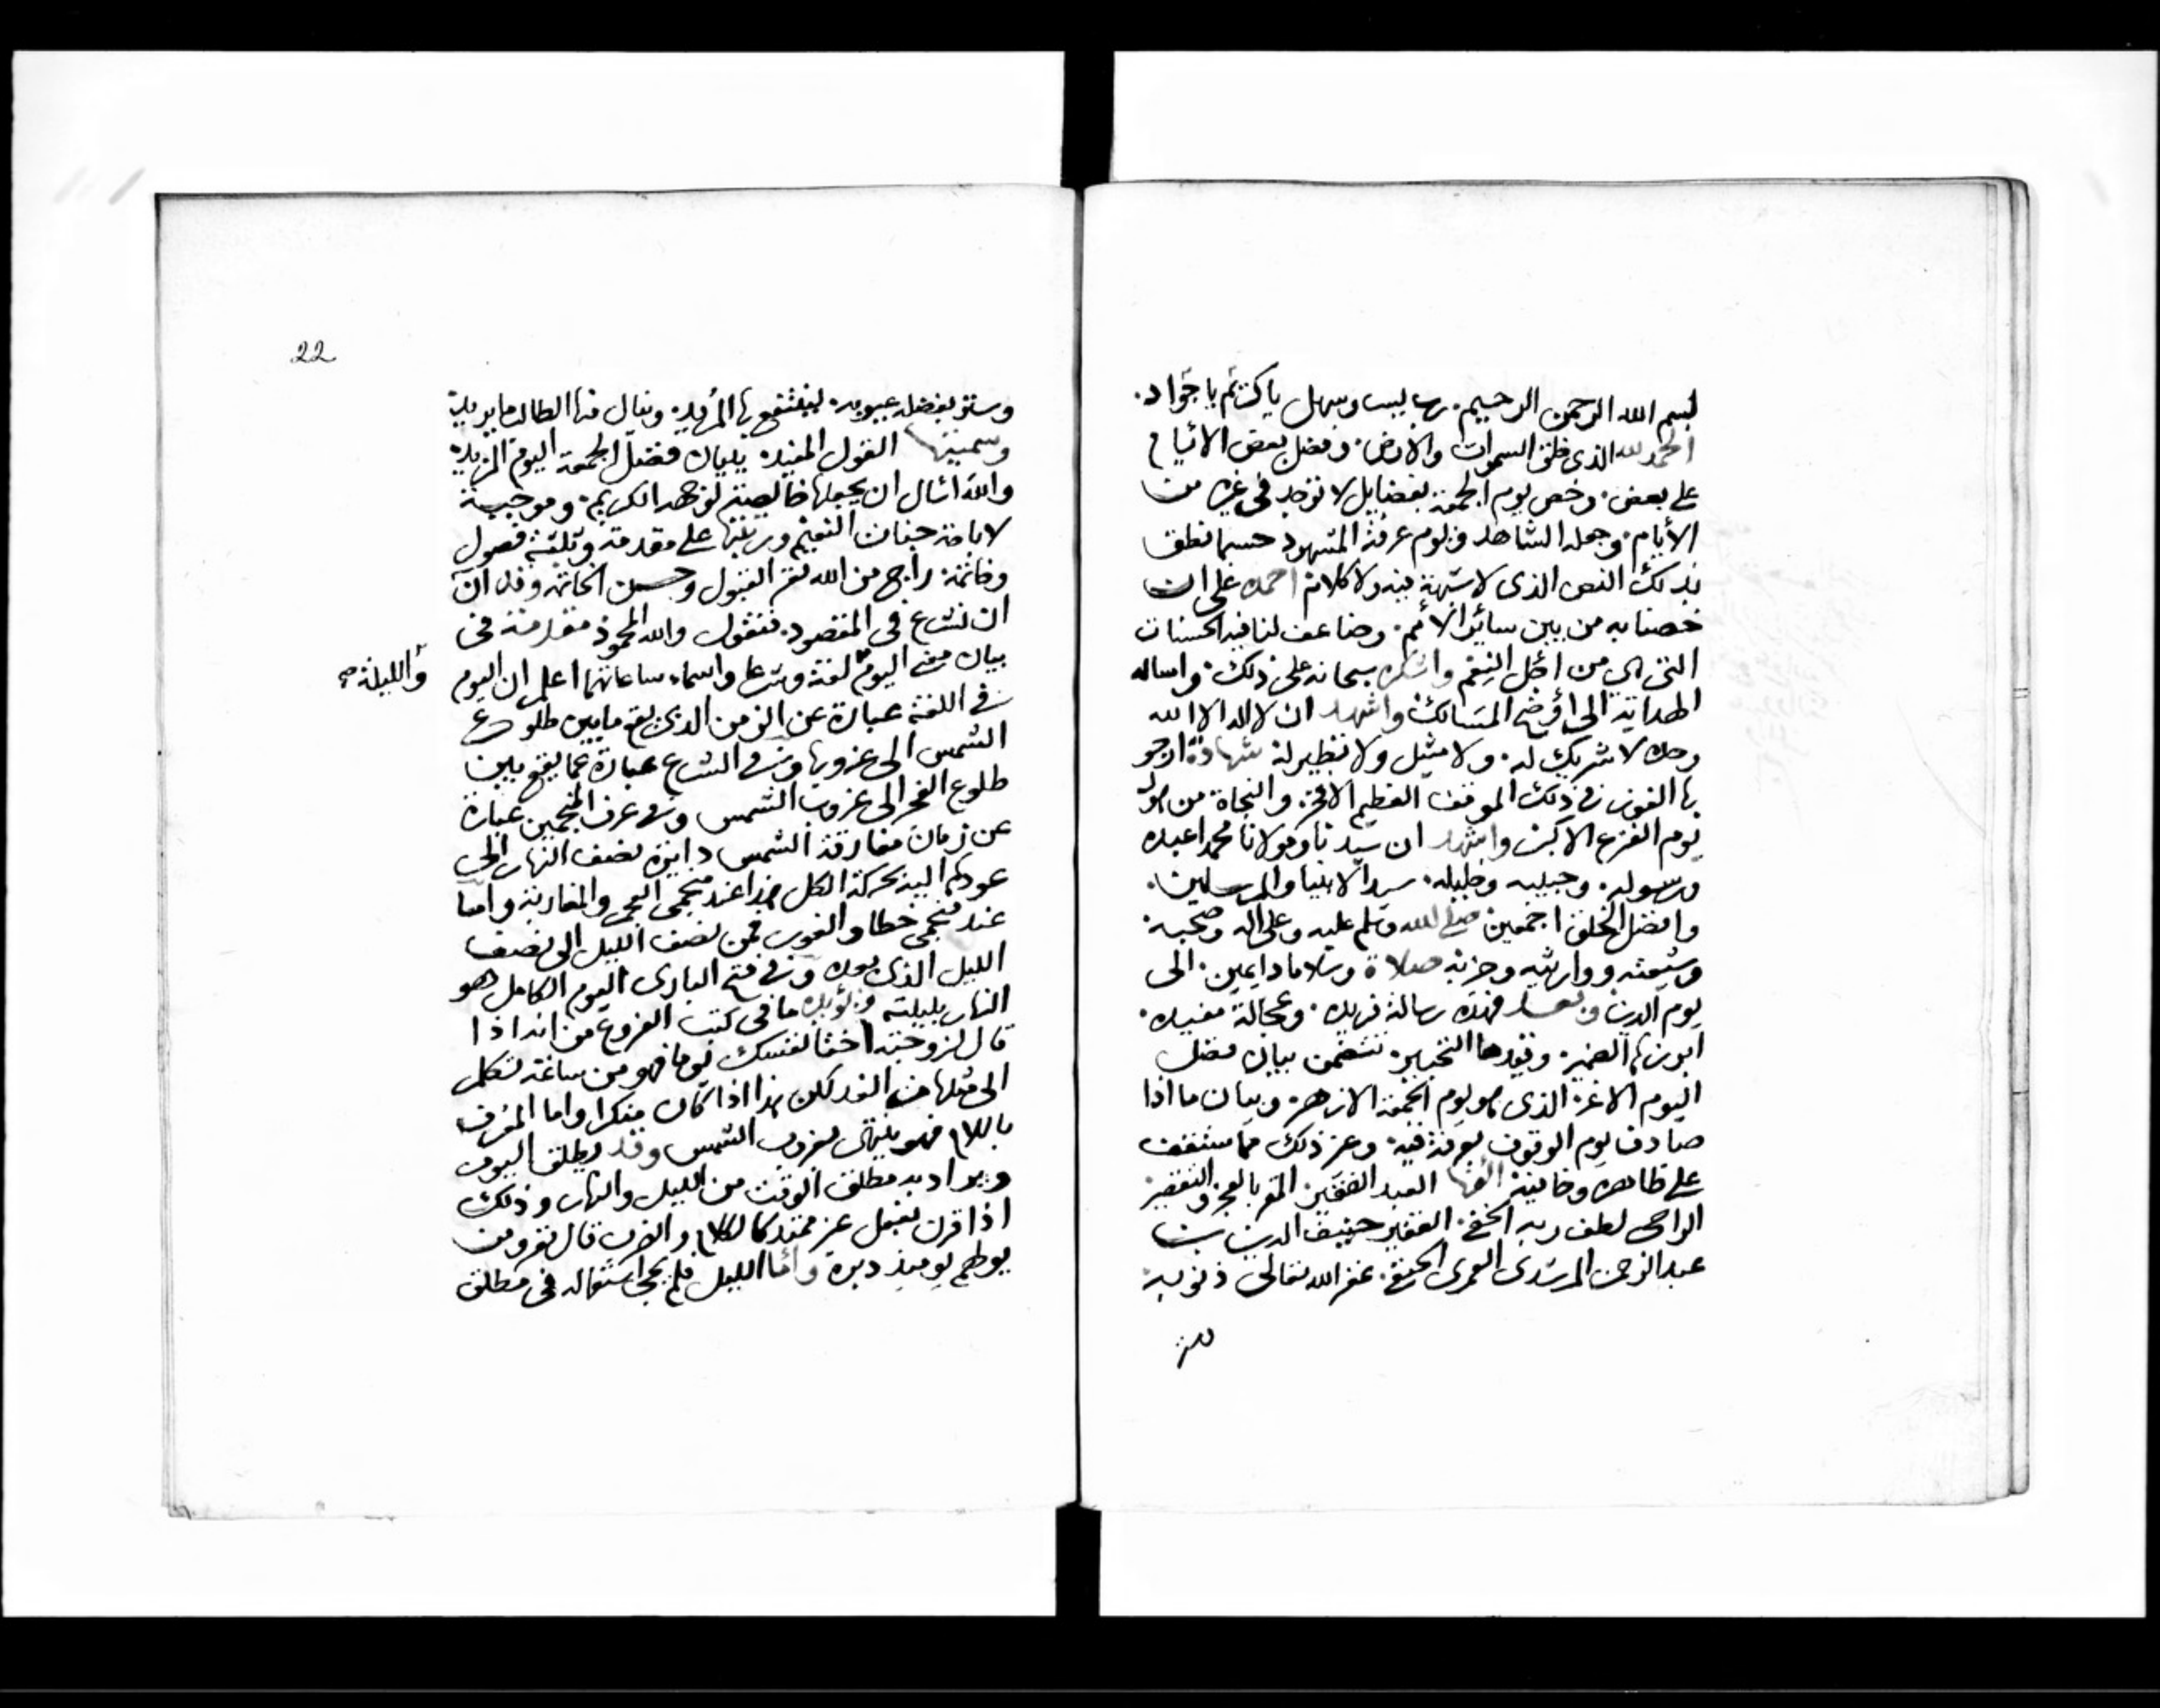 بسم الله الرحمن الرحيم. رب يسر وسهل يا كريم يا جواد.
الحمد لله الذى خلق السموات والارض. وفضل بعض الايام
على بعض. وخص يوم الجمعة بفضايل لا توجد فى غيره من
الأيام. وجعله الشاهد ويوم عرفة المشهود حسبما نطق
بذلك النص الذى لا شبهة فيه ولا كلام احمده على ان
خصنا به من بين سائر الأمم. وضاعف لنا فيه الحسنات
التى هى من اجل النعم واشكره سبحانه على ذلك. واساله
الهداية الى أوضح المسالك واشهد ان لا اله الا الله
وحده لا شريك له. ولا مثيل ولا نظير له شهادة ارجو
بها الفوز فى ذلك الموقف العظيم الافخر. والنجاة من هول
يوم الفزع الاكبر واشهد ان سيدنا ومولانا محمدا عبده
ورسوله. وحبيبه وخليله. سيد الانبيا والمرسلين.
وافضل الخلق اجمعين صلى الله وسلم عليه وعلى اله وصحبه.
وشيعته ووارثيه وحزبه صلاة وسلاما دايمين. الى
يوم الدين وبعد فهذه رسالة فريده. وعجالة مفيده.
ابرزها الضمير. وقيدها التحبير. تتضمن بيان فضل
اليوم الاغر. الذى هو يوم الجمعة الازهر. وبيان ما اذا
صادف يوم الوقوف بعرفة فيه. وغير ذلك مما ستقف
على ظاهره وخافيه الفها العبد الفقير. المقر بالعجز والتقصير
الراجى لطف ربه الخفى. الفقير حنيف الدين بن
عبد الرحمن المرشدى العمرى الحنفى. غفر الله تعالى ذنوبه
وستر
22
وستر بفضله عيوبه. لينتفع بها المريد. وينال منها الطالب ما يريد
وسميتها القول المفيد. ببيان فضل الجمعة اليوم المزيد
والله اسال ان يجعلها خالصة لوجهه الكريم. وموجبة
لاباحة جنان النعيم ورتبتها على مقدمة وثلثة فصول
وخاتمة. راج من الله تعم القبول وحسن الخاتمة وقد آن
ان نشرع فى المقصود. فنقول والله المحمود مقدمة فى
بيان معنى اليوم لغة وشرعا واسماء ساعاتهما اعلم ان اليوم
والليلة صح
فى اللغة عبارة عن الزمن الذى يقع ما بين طلوع
الشمس الى غروبها وفى الشرع عبارة عما يقع بين
طلوع الفجر الى غروب الشمس وفى عرف المنجمين عبارة
عن زمان مفارقة الشمس دايرة نصف النهار الى
عودها اليه بحركة الكل هذا عند منجمى العجم والمغاربة واما
عند منجمى خطا والغور فمن نصف الليل الى نصف
الليل الذى بعده وفى فتح البارى اليوم الكامل هو
النهار بليلته ويؤيده ما فى كتب الفروع من انه اذا
قال لزوجته اختا نفسك يوما فهو من ساعة تكلم
الى مثلها من الغد لكن هذا اذا كان منكرا واما المعرف
باللام فهو ينتهى بغروب الشمس وقد يطلق اليوم
ويراد به مطلق الوقت من الليل والنهار وذلك
اذا قرن بفعل غير ممتد كالكلام والضرب قال تعم ومن
يولهم يوميذ دبره وأما الليل فلم يجئ استعماله فى مطلق